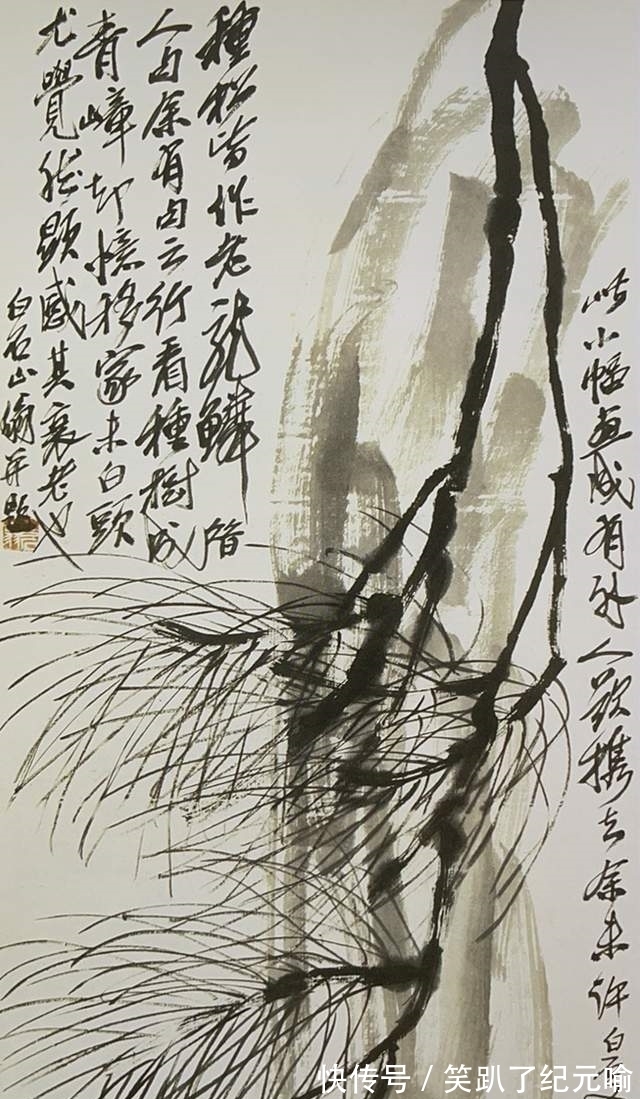 種松皆作老龍鱗
人句余有句云行看種樹成
青嶂却憶移家未白頭
尤覺 顯感其衰老也
白石山翁并題
此小幅畫成有外人欲携去余未許白
快传号 / 笑趴了纪元喻